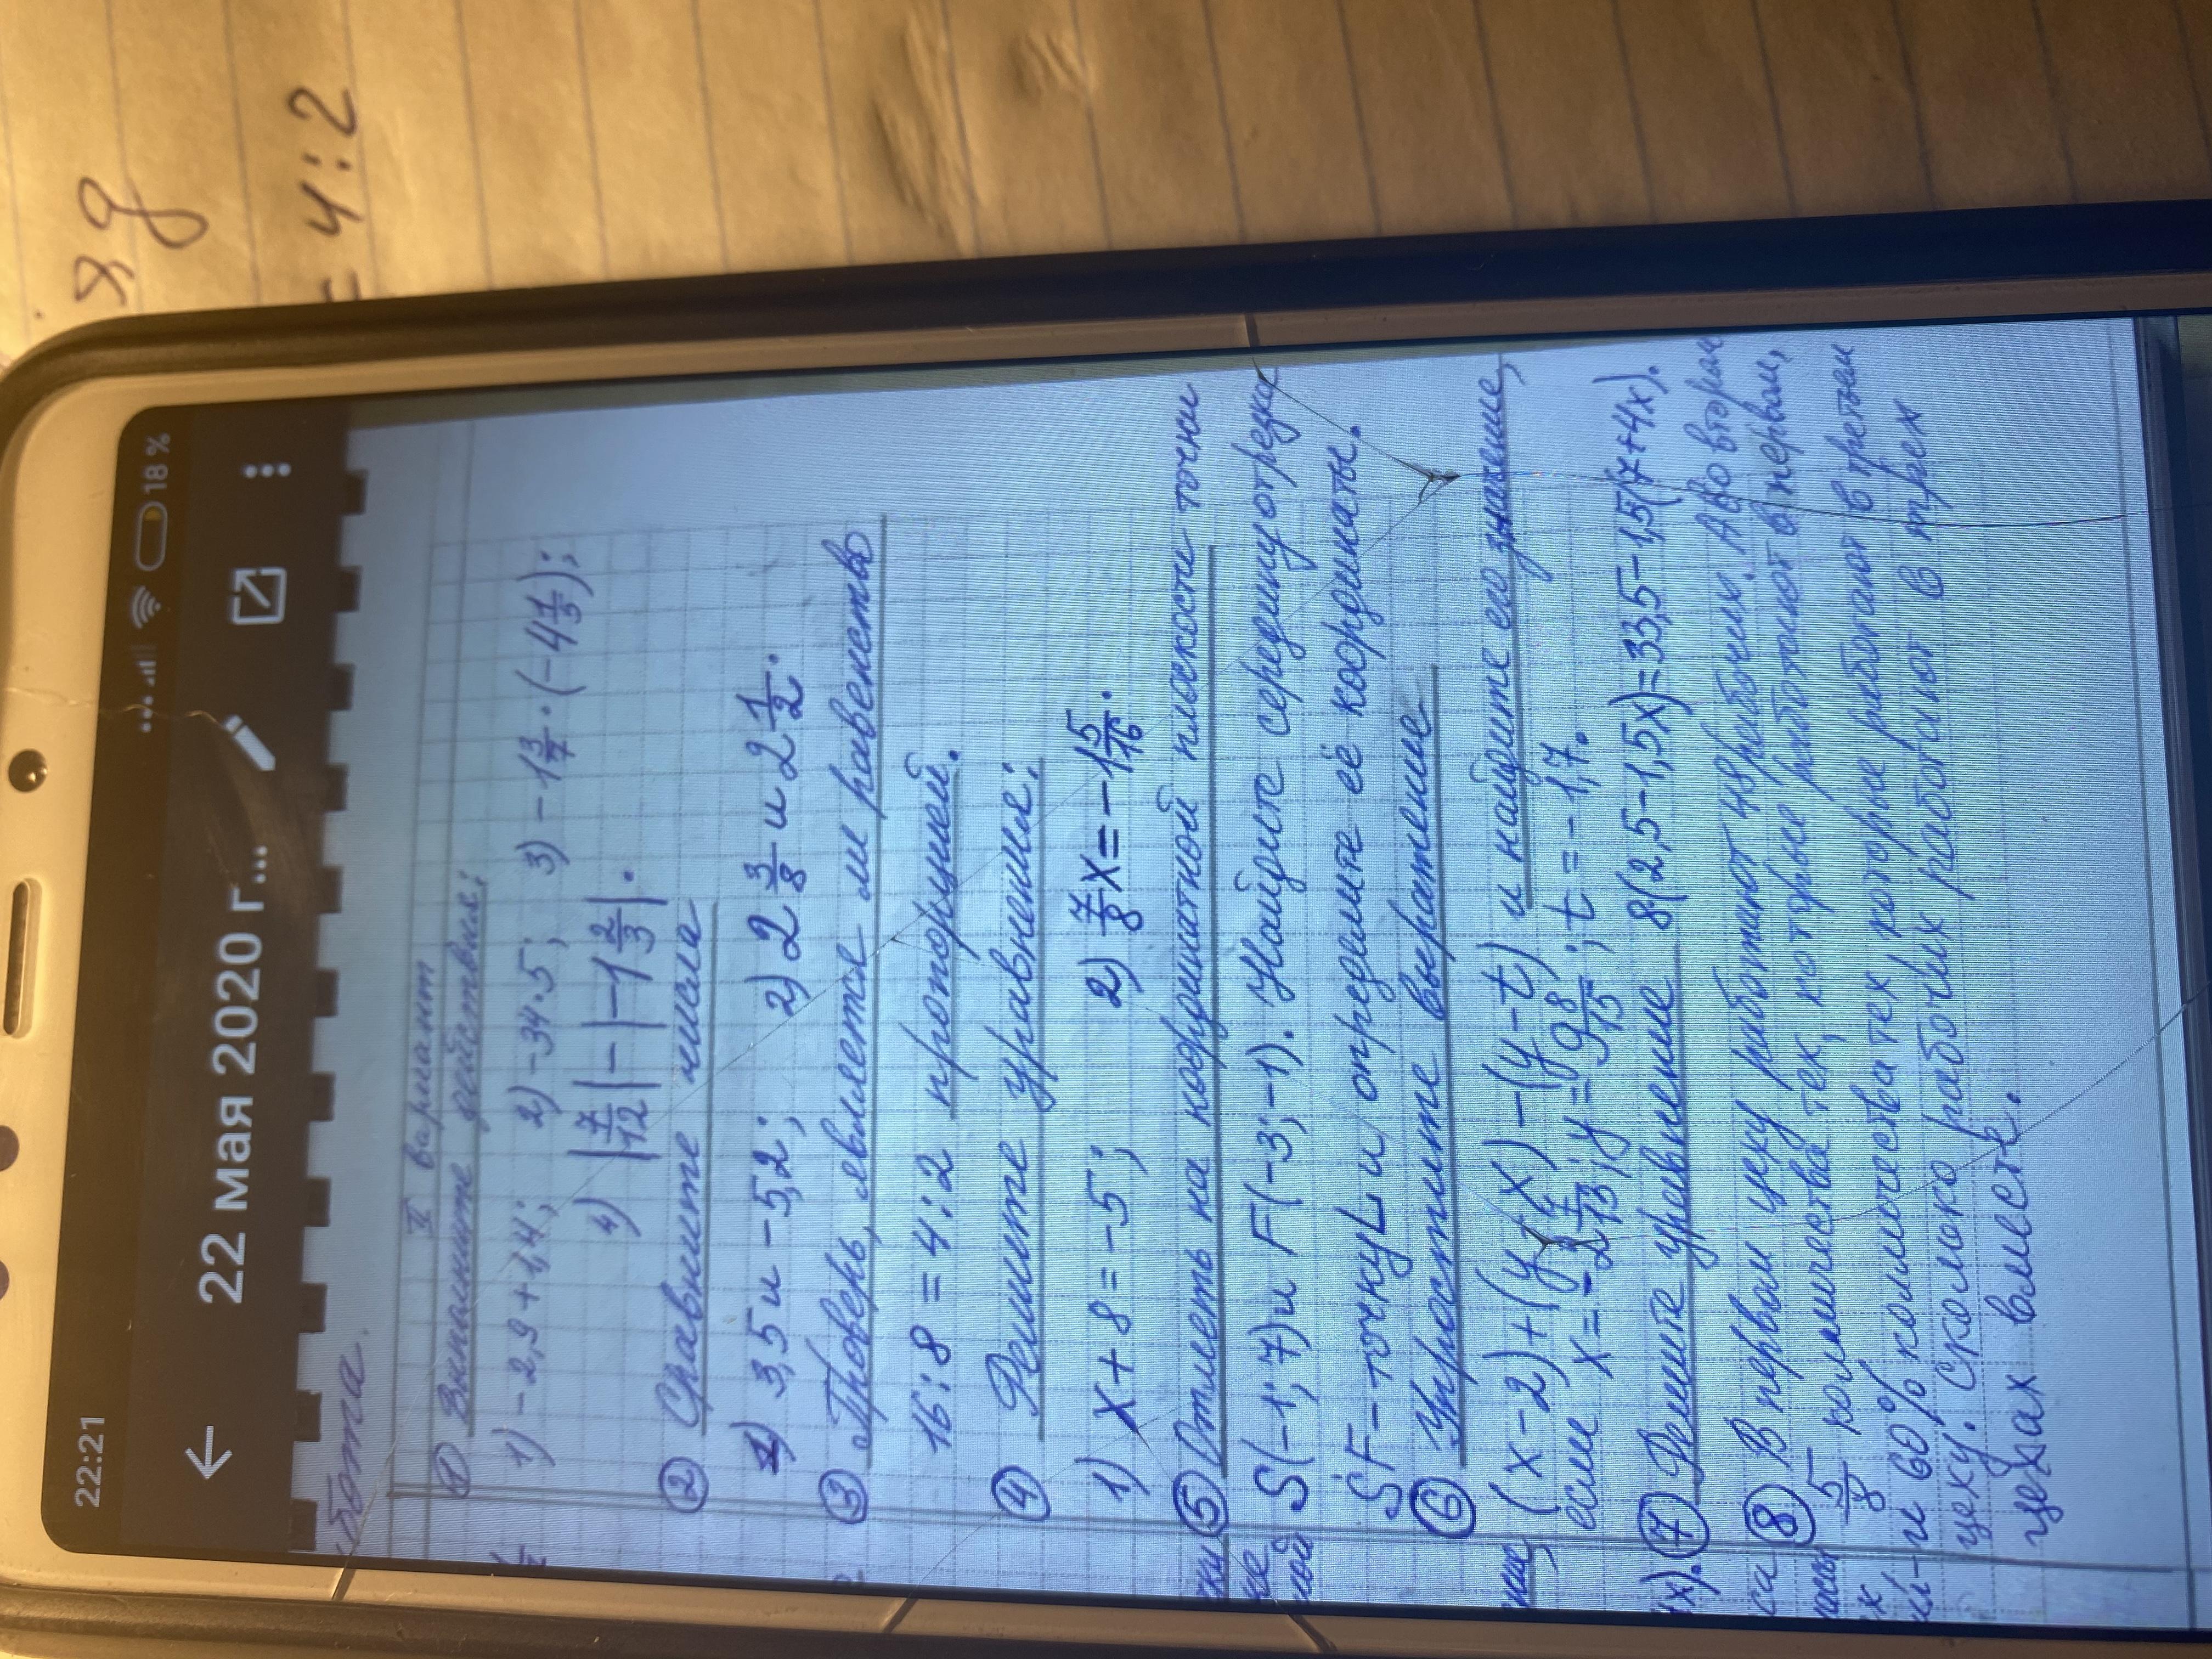 22:21
18 %
22 мая 2020 г...
бота.
V вариант
① Выполните действия:
1) -2,9+1,4; 2) -34·5; 3) -1 3/7 · (-4 1/5);
4) |7/12| - |-1 2/3|.
② Сравните числа
1) 3,5 и -5,2; 2) 2 3/8 и 2 1/2.
③ Проверь, является ли равенство
16:8=4:2 пропорцией.
④ Решите уравнения:
1) x+8=-5; 2) 7/8 x=-1 5/16.
⑤ Отметь на координатной плоскости точки
S(-1; 7) и F(-3; -1). Найдите середину отрезка
SF - точку L и определите её координаты.
⑥ Упростите выражение
(x-2)+(y-x)-(y-t) и найдите его значение,
если x=-2 7/13; y=9 8/15; t=-1,7.
⑦ Решите уравнение 8(2,5-1,5x)=33,5-1,5(7+4x).
⑧ В первом цеху работают 48 рабочих. А во втором
5/8 количества тех, которые работают в первом,
и 60% количества тех, которые работают в третьем
цеху. Сколько рабочих работают в трех
цехах вместе.
яд
= 4:2